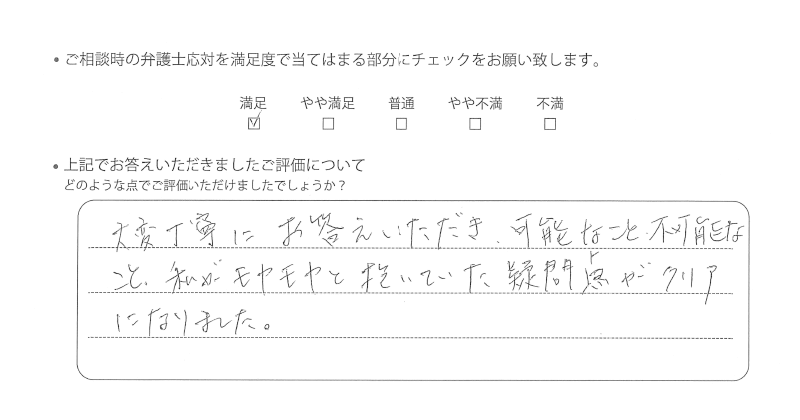 • ご相談時の弁護士応対を満足度で当てはまる部分にチェックをお願い致します。
満足 やや満足 普通 やや不満 不満
☑ □ □ □ □
• 上記でお答えいただきましたご評価について
どのような点でご評価いただけましたでしょうか？
大変丁寧にお答えいただき、可能なこと、不可能な
こと、私がモヤモヤと抱いていた疑問点がクリア
になりました。